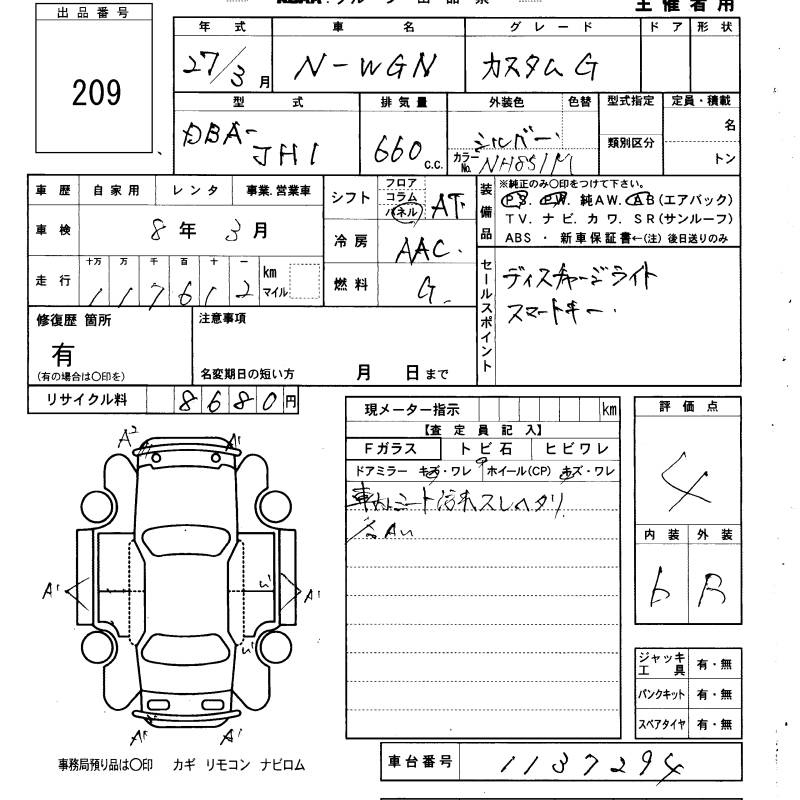 出品番号
209
主催者用
年式 車名 グレード ドア 形状
27/3月 N-WGN カスタムG
型式 排気量 外装色 色替 型式指定 定員・積載
DBA-JH1 660c.c. シルバー 類別区分 名
カラーNo. NH851M トン
車歴 自家用 レンタ 事業.営業車
車検 8年3月
走行 十万 万 千 百 十 一
117612 km マイル
シフト フロア コラム パネル AT
冷房 AAC
燃料 G
装備品
※純正のみ○印をつけて下さい。
PS. PW. 純AW. AB(エアバック)
TV. ナビ. カワ. SR(サンルーフ)
ABS ・ 新車保証書←(注) 後日送りのみ
セールスポイント
ディスチャージライト
スマートキー.
修復歴 箇所
有
(有の場合は○印を)
注意事項
名変期日の短い方 月 日まで
リサイクル料 8680円
現メーター指示 km
【査定員記入】
Fガラス トビ石 ヒビワレ
ドアミラー キズ・ワレ ホイール(CP) キズ・ワレ
車内シート汚れスレヘタリ
各AU
評価点
4
内装 外装
b B
A2 A1
A1 A1
A1
ジャッキ工具 有・無
パンクキット 有・無
スペアタイヤ 有・無
事務局預り品は○印 カギ リモコン ナビロム
車台番号 1137294